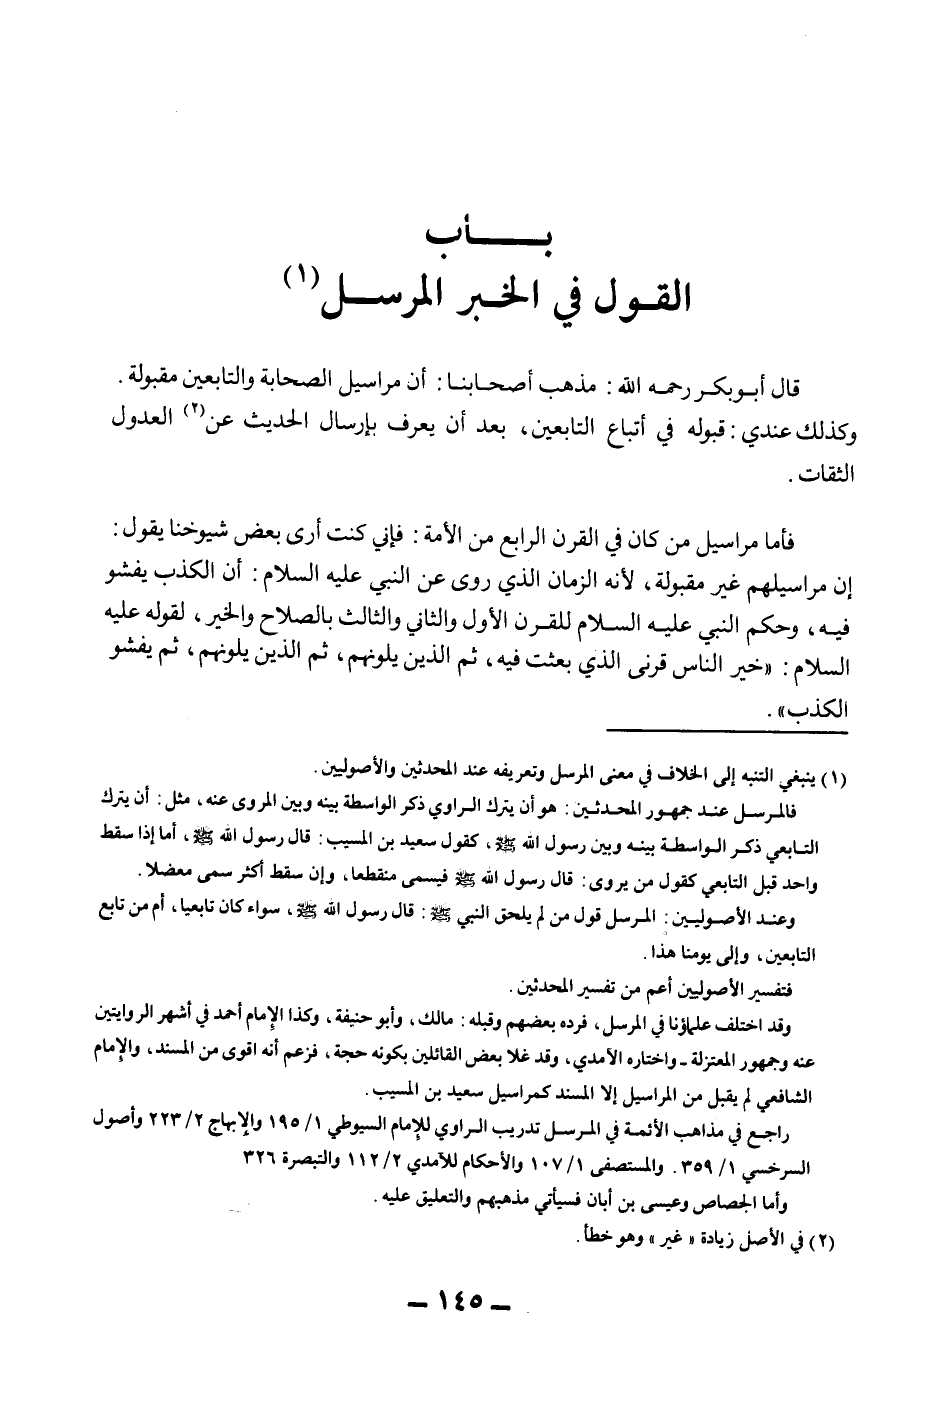 بـــــأب
القول في الخبر المرسل (١)
قال أبوبكر رحمه الله : مذهب أصحابنا : أن مراسيل الصحابة والتابعين مقبولة .
وكذلك عندي : قبوله في أتباع التابعين، بعد أن يعرف بإرسال الحديث عن(٢) العدول
الثقات .
فأما مراسيل من كان في القرن الرابع من الأمة : فإني كنت أرى بعض شيوخنا يقول :
إن مراسيلهم غير مقبولة، لأنه الزمان الذي روى عن النبي عليه السلام : أن الكذب يفشو
فيه، وحكم النبي عليه السلام للقرن الأول والثاني والثالث بالصلاح والخير، لقوله عليه
السلام : «خير الناس قرنى الذي بعثت فيه، ثم الذين يلونهم، ثم الذين يلونهم، ثم يفشو
الكذب» .
(١) ينبغي التنبه إلى الخلاف في معنى المرسل وتعريفه عند المحدثين والأصوليين .
فالمرسل عند جمهور المحدثين : هو أن يترك الراوي ذكر الواسطة بينه وبين المروى عنه، مثل : أن يترك
التابعي ذكر الواسطة بينه وبين رسول الله ﷺ، كقول سعيد بن المسيب : قال رسول الله ﷺ، أما إذا سقط
واحد قبل التابعي كقول من يروى : قال رسول الله ﷺ فيسمى منقطعا، وإن سقط أكثر سمى معضلا .
وعند الأصوليين : المرسل قول من لم يلحق النبي ﷺ : قال رسول الله ﷺ، سواء كان تابعيا، أم من تابع
التابعين، وإلى يومنا هذا .
فتفسير الأصوليين أعم من تفسير المحدثين .
وقد اختلف علماؤنا في المرسل، فرده بعضهم وقبله : مالك، وأبو حنيفة، وكذا الإمام أحمد في أشهر الروايتين
عنه وجمهور المعتزلة ـ واختاره الآمدي، وقد غلا بعض القائلين بكونه حجة، فزعم أنه اقوى من المسند، والإمام
الشافعي لم يقبل من المراسيل إلا المسند كمراسيل سعيد بن المسيب .
راجع في مذاهب الأئمة في المرسل تدريب الراوي للإمام السيوطي ١/ ١٩٥ والإبهاج ٢/ ٢٢٣ وأصول
السرخسي ١/ ٣٥٩ . والمستصفى ١/ ١٠٧ والأحكام للآمدي ٢/ ١١٢ والتبصرة ٣٢٦
وأما الجصاص وعيسى بن أبان فسيأتي مذهبهم والتعليق عليه .
(٢) في الأصل زيادة « غير » وهو خطأ .
ـ ١٤٥ ـ